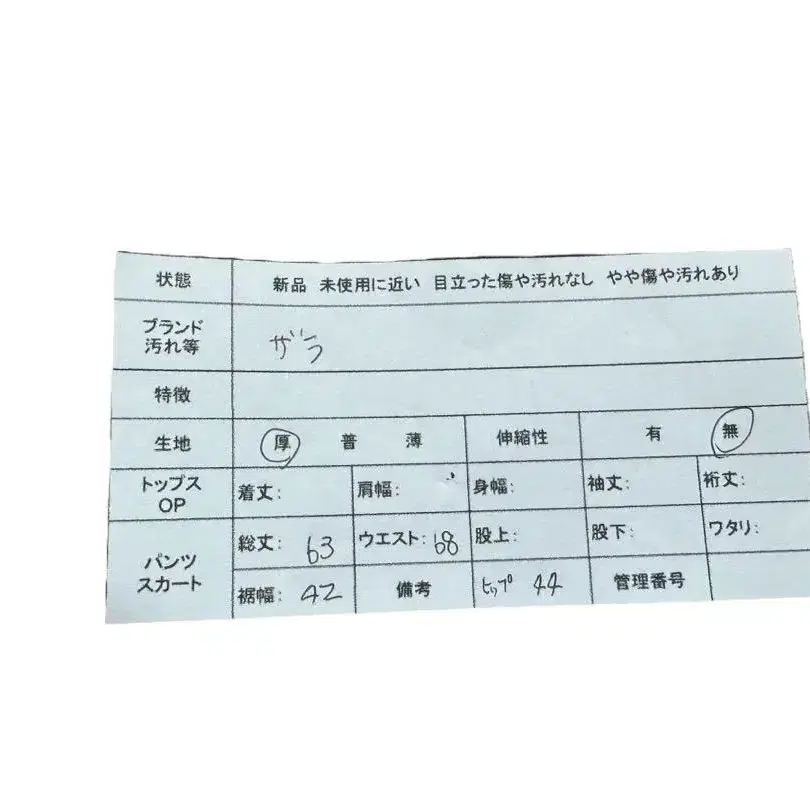 状態 新品 未使用に近い 目立った傷や汚れなし やや傷や汚れあり
ブランド
汚れ等 ザラ
特徴
生地 厚 普 薄 伸縮性 有 無
トップス
OP 着丈: 肩幅: 身幅: 袖丈: 裄丈:
パンツ
スカート 総丈: 63 ウエスト: 68 股上: 股下: ワタリ:
裾幅: 42 備考 ヒップ 44 管理番号